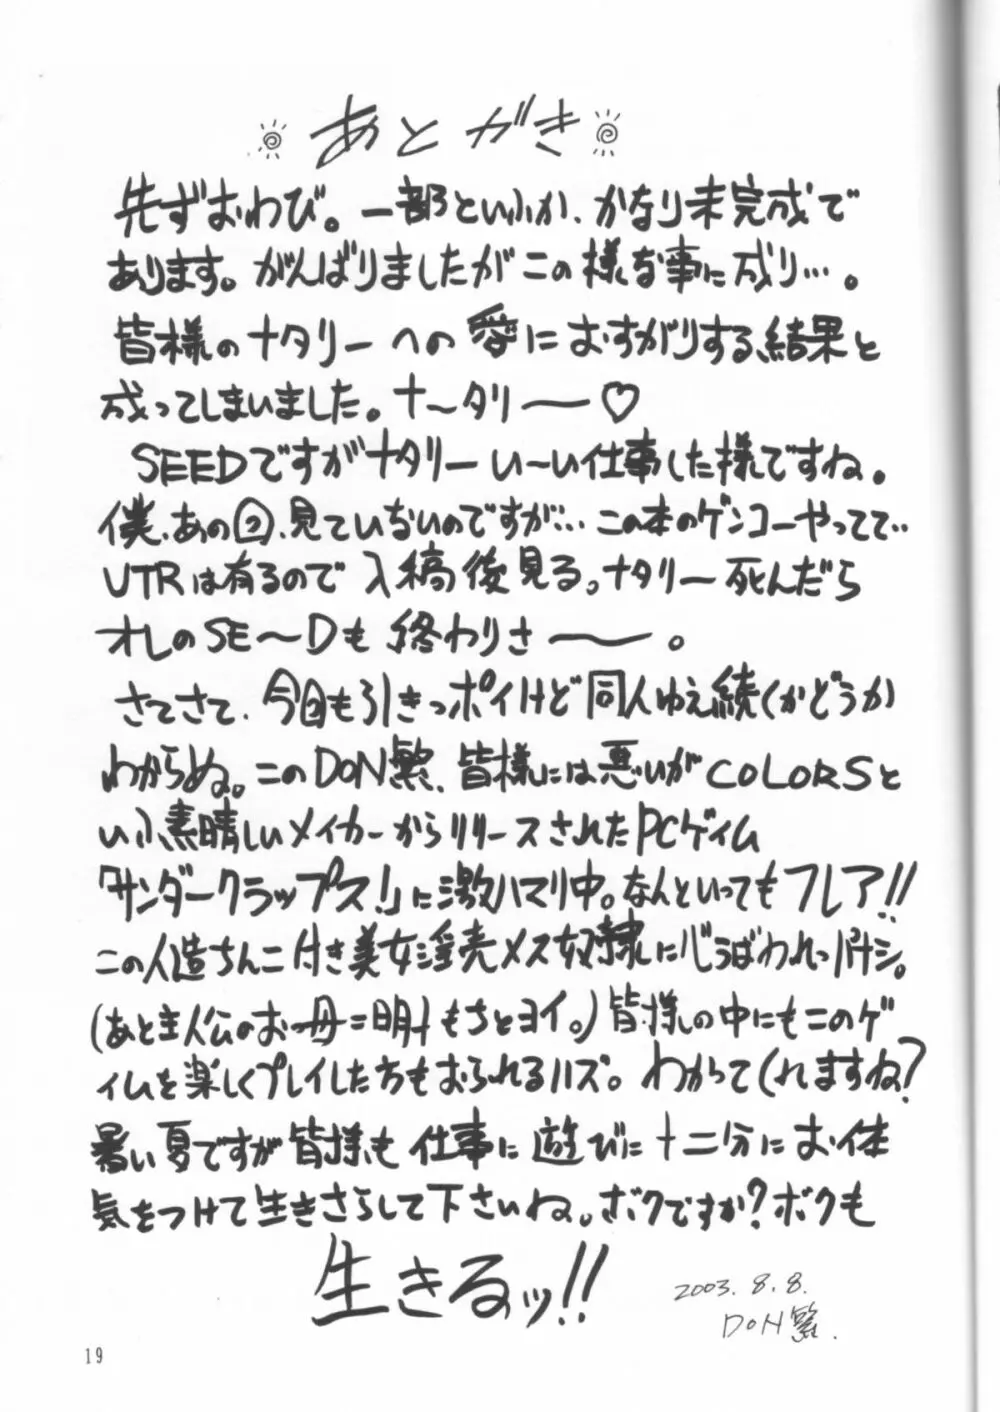 あとがき
先ずおわび。一部といふか、かなり未完成で
あります。がんばりましたがこの様な事に成り…。
皆様のナタリーへの愛におすがりする結果と
成ってしまいました。ナ〜タリー♡
SEEDですがナタリーい〜い仕事した様ですね。
僕、あの回、見ていないのですが… この本のゲンコーやってて‥
VTRは有るので入稿後見る。ナタリー死んだら
オレのSE〜Dも終わりさ〜。
さてさて、今回も引きっポイけど同人ゆえ続くかどうか
わからぬ。このDON繁、皆様には悪いがCOLORSと
いふ素晴しいメイカーからリリースされたPCゲイム
「サンダークラップス!」に激ハマリ中。なんといってもフレア!!
この人造ちんこ付き美女淫売メス奴隷に心うばわれっパナシ。
(あと主人公のお母ニ明もちとヨイ。)皆様の中にもこのゲ
イムを楽しくプレイした方もおられるハズ。わかってくれますね?
暑い夏ですが皆様も仕事に遊びに十二分にお体
気をつけて生きさらして下さいね。ボクですか?ボクも
生きるッ!!
2003.8.8.
DON繁.
19